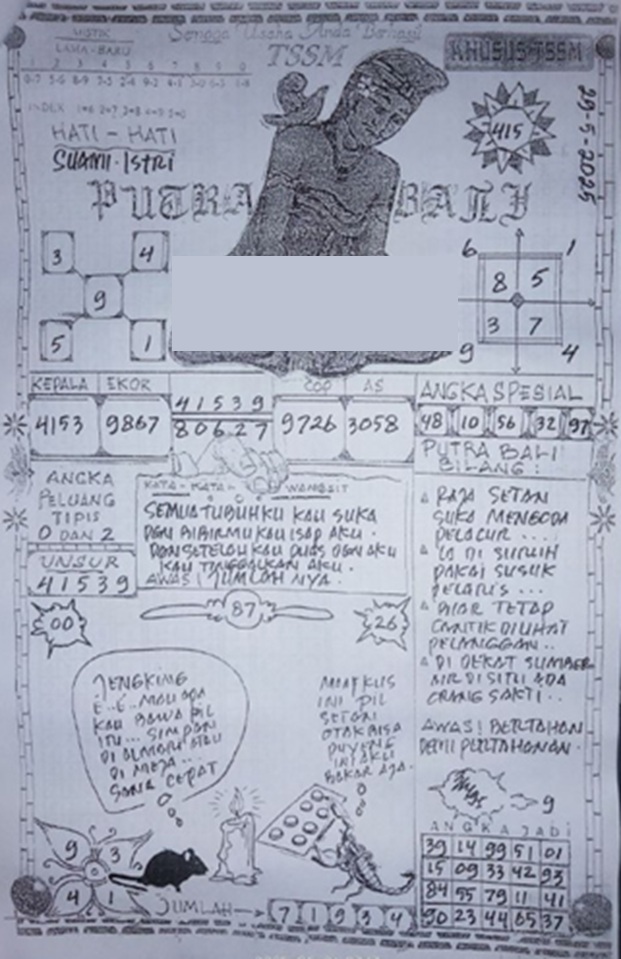 MISTIK
Semoga Usaha Anda Berhasil
LAMA - BARU
TSSM
KHUSUS TSSM
1 2 3 4 5 6 7 8 9 0
INDEX 1=6 2=7 3=8 4=9 5=0
415
29-5-2025
HATI - HATI
SUAMI - ISTRI
PUTRA BALI
3 4
9
5 1
6 1
8 5
3 7
9 4
KEPALA EKOR COP AS
4153 9867
41539
80627
9726 3058
ANGKA SPESIAL
48 10 56 32 97
PUTRA BALI
BILANG :
ANGKA
PELUANG
TIPIS
0 DAN 2
UNSUR
41539
KATA - KATA - WANGSIT
SEMUA TUBUHKU KAU SUKA
DGN BIBIRMU KAU ISAP AKU .
DAN SETELAH KAU PUAS DGN AKU
KAU TINGGALKAN AKU .
AWAS ! JUMLAH NYA .
RAJA SETAN
SUKA MENGODA
PELACUR ....
IA DI SURUH
PAKAI SUSUK
PELARIS ...
BIAR TETAP
CANTIK DILIHAT
PELANGGAN ..
DI DEKAT SUMBER
AIR DI SITU ADA
ORANG SAKTI ..
AWAS ! BERTAHAN
DEMI PERTAHANAN .
00
87
26
JENGKING
E..E.. MAU APA
KAU BAWA PIL
ITU ... SIMPAN
DI ALMARI ATAU
DI MEJA ...
SANA CEPAT
MAAF KUS
INI PIL
SETAN
OTAK BISA
PUYENG
INI AKU
BAKAR AJA .
9
ANGKA JADI
39 14 99 51 01
15 09 33 42 93
84 55 79 11 41
90 23 44 65 37
9 3
4 1
JUMLAH
7 1 9 3 4